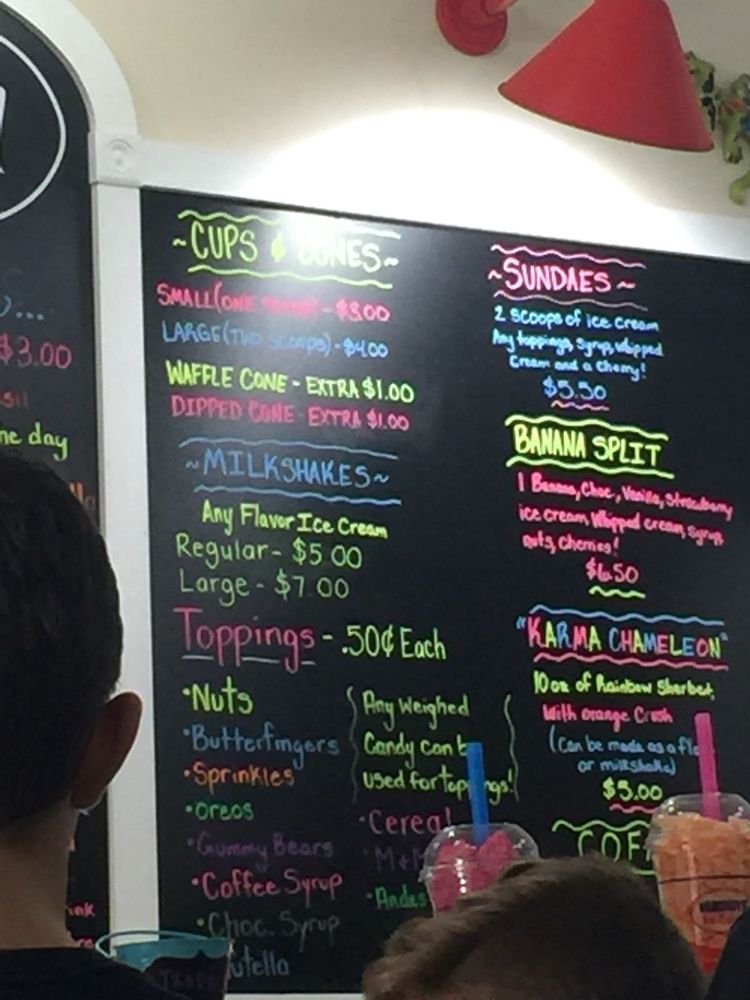 $3.00
day
~CUPS & CONES~
SMALL(ONE SCOOP) - $3.00
LARGE(TWO SCOOPS) - $4.00
WAFFLE CONE - EXTRA $1.00
DIPPED CONE - EXTRA $1.00
~MILKSHAKES~
Any Flavor Ice Cream
Regular - $5.00
Large - $7.00
Toppings - .50¢ Each
·Nuts
·Butterfingers
·Sprinkles
·Oreos
·Gummy Bears
·Coffee Syrup
·Choc. Syrup
utella
Any Weighed
Candy can b
used for toppings!
·Cereal
·M+M
·Andes
~SUNDAES~
2 scoops of ice cream
Any toppings, syrup, whipped
Cream and a Cherry!
$5.50
BANANA SPLIT
1 Banana, Choc., Vanilla, Strawberry
ice cream, Whipped cream, syrup,
nuts, cherries!
$6.50
"KARMA CHAMELEON"
10oz of Rainbow Sherbet,
With orange Crush
(Can be made as a flo
or milkshake)
$5.00
COF